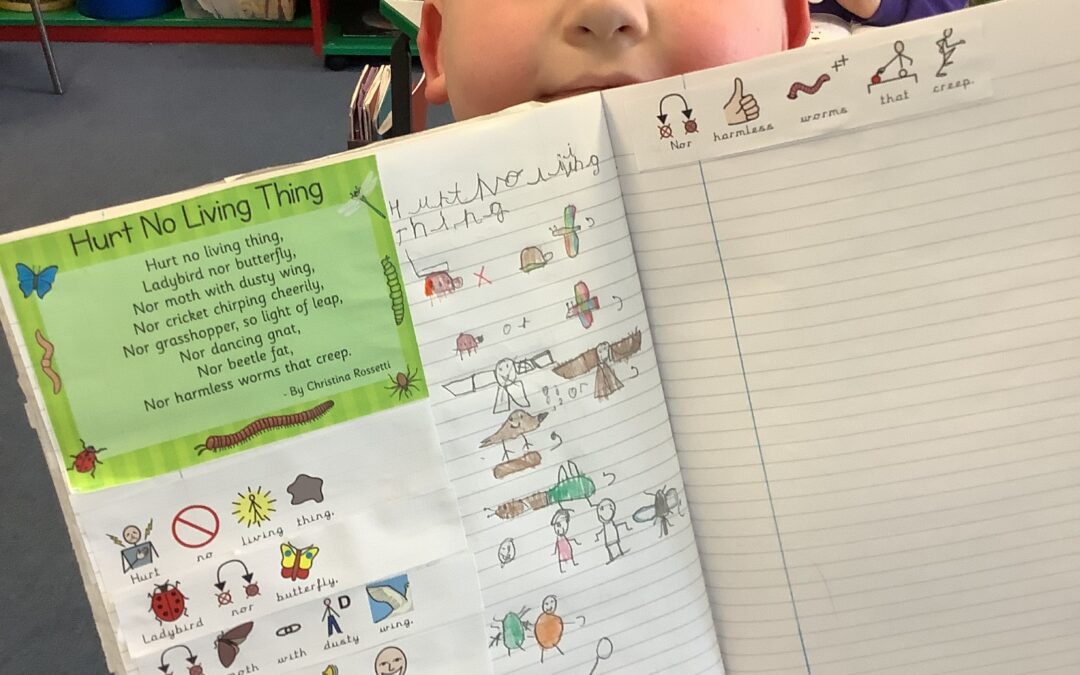 Hurt No Living Thing
Hurt no living thing,
Ladybird nor butterfly,
Nor moth with dusty wing,
Nor cricket chirping cheerily,
Nor grasshopper, so light of leap,
Nor dancing gnat,
Nor beetle fat,
Nor harmless worms that creep.
- By Christina Rossetti
Hurt no living thing.
Ladybird nor butterfly.
with dusty wing.
D
Hurt No
Thing
or
or
Nor harmless worms that creep.